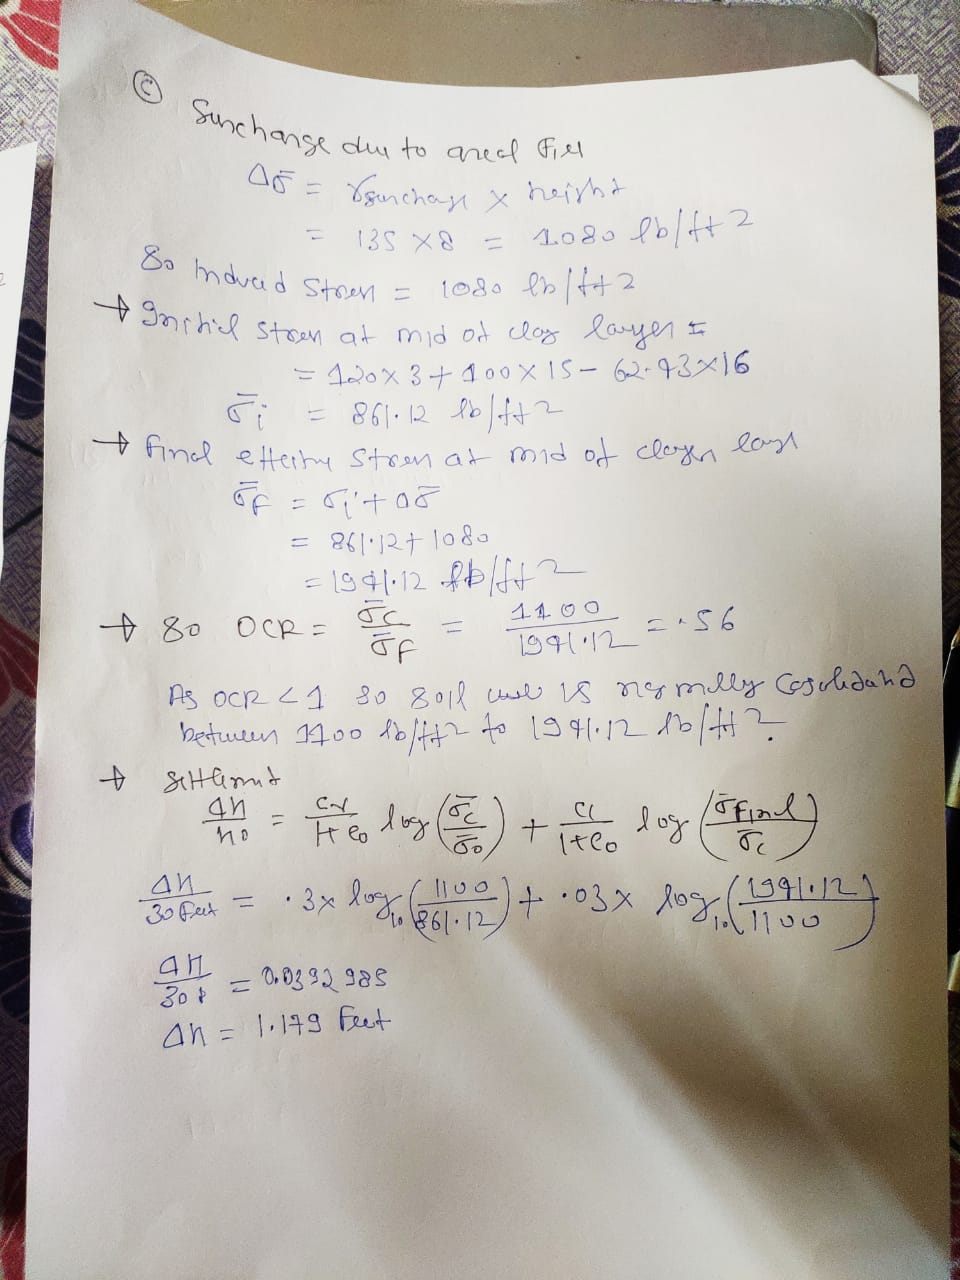 Ⓒ Surcharge due to areal Fill
Δσ̄ = γsurcharge × height
= 135 × 8 = 1080 lb/ft2
So Induced Stress = 1080 lb/ft2
→ Initial stress at mid of clay layer =
= 120×3 + 100×15 - 62.43×16
σ̄i = 861.12 lb/ft2
→ Final effective stress at mid of clayer layer
σ̄F = σi' + Δσ̄
= 861.12 + 1080
= 1941.12 lb/ft2
→ So OCR = σ̄c/σ̄F = 1100/1941.12 = .56
As OCR < 1 so soil will is normally Cosolidated
between 1100 lb/ft2 to 1941.12 lb/ft2.
→ Settlement
Δh/h0 = Cr/1+e0 log(σ̄c/σ̄0) + Cc/1+e0 log(σ̄Final/σ̄c)
Δh/30 Feet = .3× log10(1100/861.12) + .03× log10(1941.12/1100)
Δh/30 = 0.0392985
Δh = 1.179 Feet